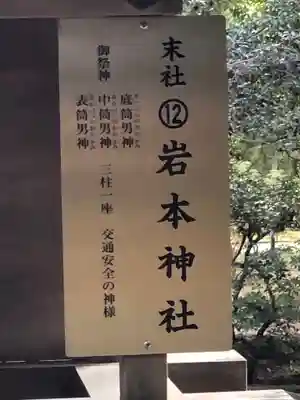 末社 ⑫ 岩本神社
御祭神
底筒男神
中筒男神 三柱一座 交通安全の神様
表筒男神